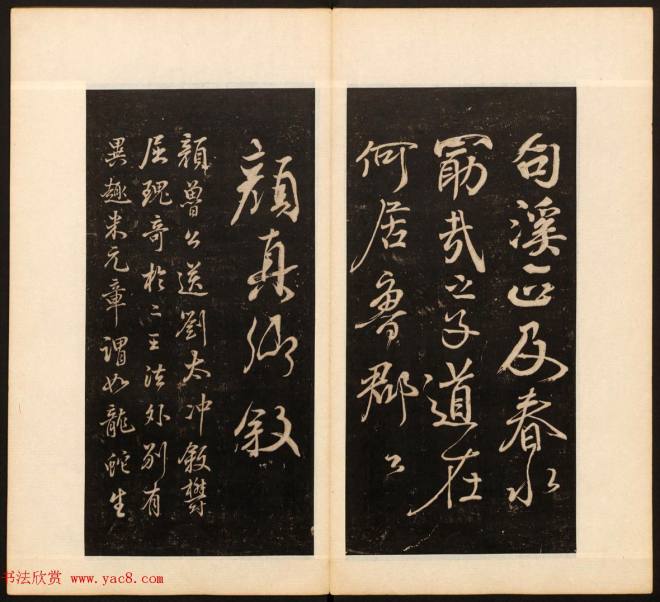 句溪正及春水
勖哉之子道在
何居魯郡公
顏真卿叙
顏魯公送劉太冲叙欝
屈瑰奇於二王法外别有
異趣米元章謂如龍蛇生
书法欣赏 www.yac8.com